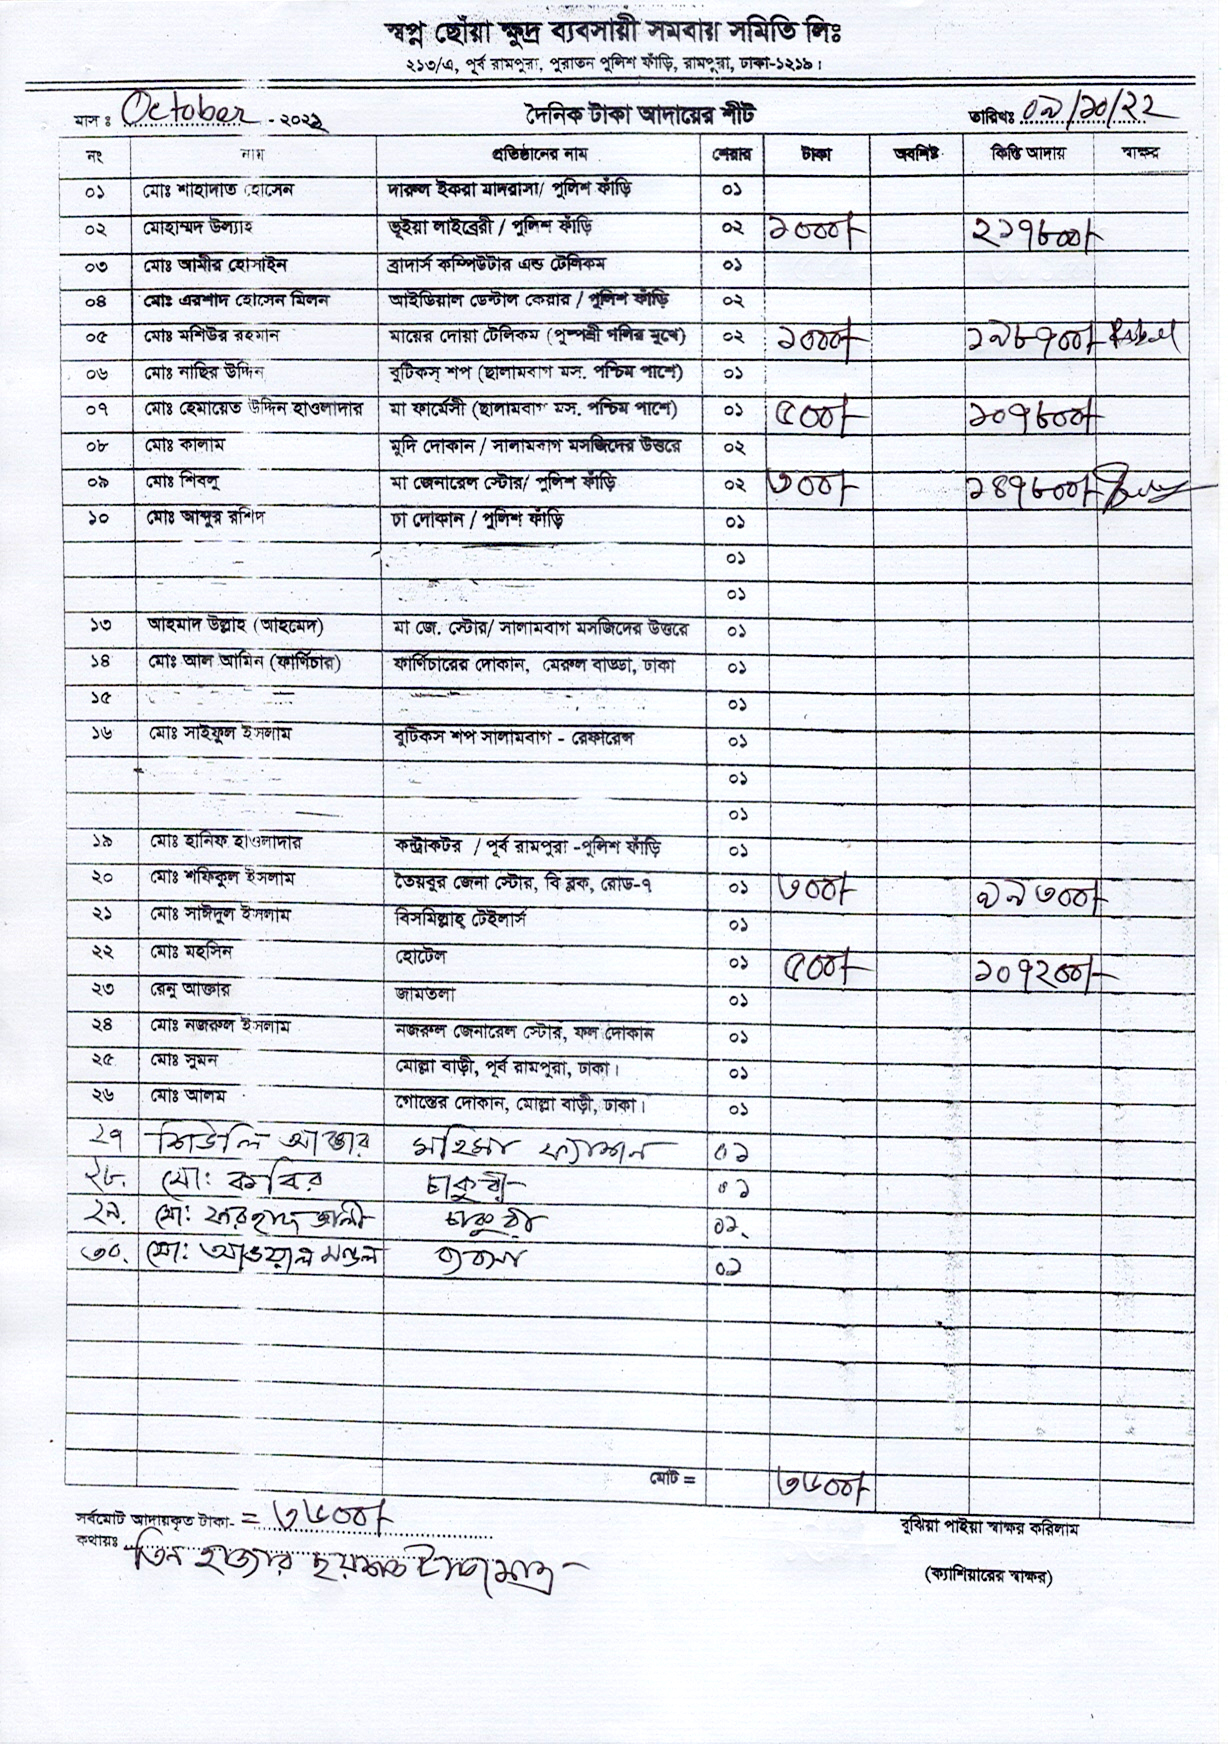 স্বপ্ন ছোঁয়া ক্ষুদ্র ব্যবসায়ী সমবায় সমিতি লিঃ
২১৩/এ, পূর্ব রামপুরা, পুরাতন পুলিশ ফাঁড়ি, রামপুরা, ঢাকা-১২১৯।
মাস ঃ October - ২০২২ দৈনিক টাকা আদায়ের শীট তারিখঃ ০৯/১০/২২
নং নাম প্রতিষ্ঠানের নাম শেয়ার টাকা অবশিষ্ট কিস্তি আদায় স্বাক্ষর
০১ মোঃ শাহাদাত হোসেন দারুল ইকরা মাদরাসা/ পুলিশ ফাঁড়ি ০১
০২ মোহাম্মদ উল্যাহ ভূইয়া লাইব্রেরী / পুলিশ ফাঁড়ি ০২ ১০০০/- ২১৭৮০০/-
০৩ মোঃ আমীর হোসাইন ব্রাদার্স কম্পিউটার এন্ড টেলিকম ০১
০৪ মোঃ এরশাদ হোসেন মিলন আইডিয়াল ডেন্টাল কেয়ার / পুলিশ ফাঁড়ি ০২
০৫ মোঃ মশিউর রহমান মায়ের দোয়া টেলিকম (পুষ্পশ্রী গলির মুখে) ০২ ১০০০/- ১৯৮৭০০/-
০৬ মোঃ নাছির উদ্দিন বুটিকস্ শপ (ছালামবাগ মস. পশ্চিম পাশে) ০১
০৭ মোঃ হেমায়েত উদ্দিন হাওলাদার মা ফার্মেসী (ছালামবাগ মস. পশ্চিম পাশে) ০১ ৫০০/- ১০৭৮০০/-
০৮ মোঃ কালাম মুদি দোকান / সালামবাগ মসজিদের উত্তরে ০২
০৯ মোঃ শিবলু মা জেনারেল স্টোর/ পুলিশ ফাঁড়ি ০২ ৩০০/- ১৪৭৮০০/-
১০ মোঃ আব্দুর রশিদ চা দোকান / পুলিশ ফাঁড়ি ০১
০১
০১
১৩ আহমাদ উল্লাহ (আহমেদ) মা জে. স্টোর/ সালামবাগ মসজিদের উত্তরে ০১
১৪ মোঃ আল আমিন (ফার্ণিচার) ফার্ণিচারের দোকান, মেরুল বাড্ডা, ঢাকা ০১
১৫ ০১
১৬ মোঃ সাইফুল ইসলাম বুটিকস শপ সালামবাগ - রেফারেন্স ০১
০১
০১
১৯ মোঃ হানিফ হাওলাদার কন্ট্রাকটর / পূর্ব রামপুরা -পুলিশ ফাঁড়ি ০১
২০ মোঃ শফিকুল ইসলাম তৈয়বুর জেনা স্টোর, বি ব্লক, রোড-৭ ০১ ৩০০/- ৯৯৩০০/-
২১ মোঃ সাঈদুল ইসলাম বিসমিল্লাহ্ টেইলার্স ০১
২২ মোঃ মহসিন হোটেল ০১ ৫০০/- ১০৭২০০/-
২৩ রেনু আক্তার জামতলা ০১
২৪ মোঃ নজরুল ইসলাম নজরুল জেনারেল স্টোর, ফল দোকান ০১
২৫ মোঃ সুমন মোল্লা বাড়ী, পূর্ব রামপুরা, ঢাকা। ০১
২৬ মোঃ আলম গোস্তের দোকান, মোল্লা বাড়ী, ঢাকা। ০১
২৭ শিউলি আক্তার মহিমা ফ্যাশন ০১
২৮. মো: কবির চাকুরী ০১
২৯. মো: ফরহাদ আলী চাকুরী ০১.
৩০. মো: আওয়াল মণ্ডল ব্যবসা ০১
মোট = ৩৬০০/-
সর্বমোট আদায়কৃত টাকা- = ৩৬০০/-
কথায়ঃ তিন হাজার ছয়শত টাকা মাত্র -
বুঝিয়া পাইয়া স্বাক্ষর করিলাম
(ক্যাশিয়ারের স্বাক্ষর)